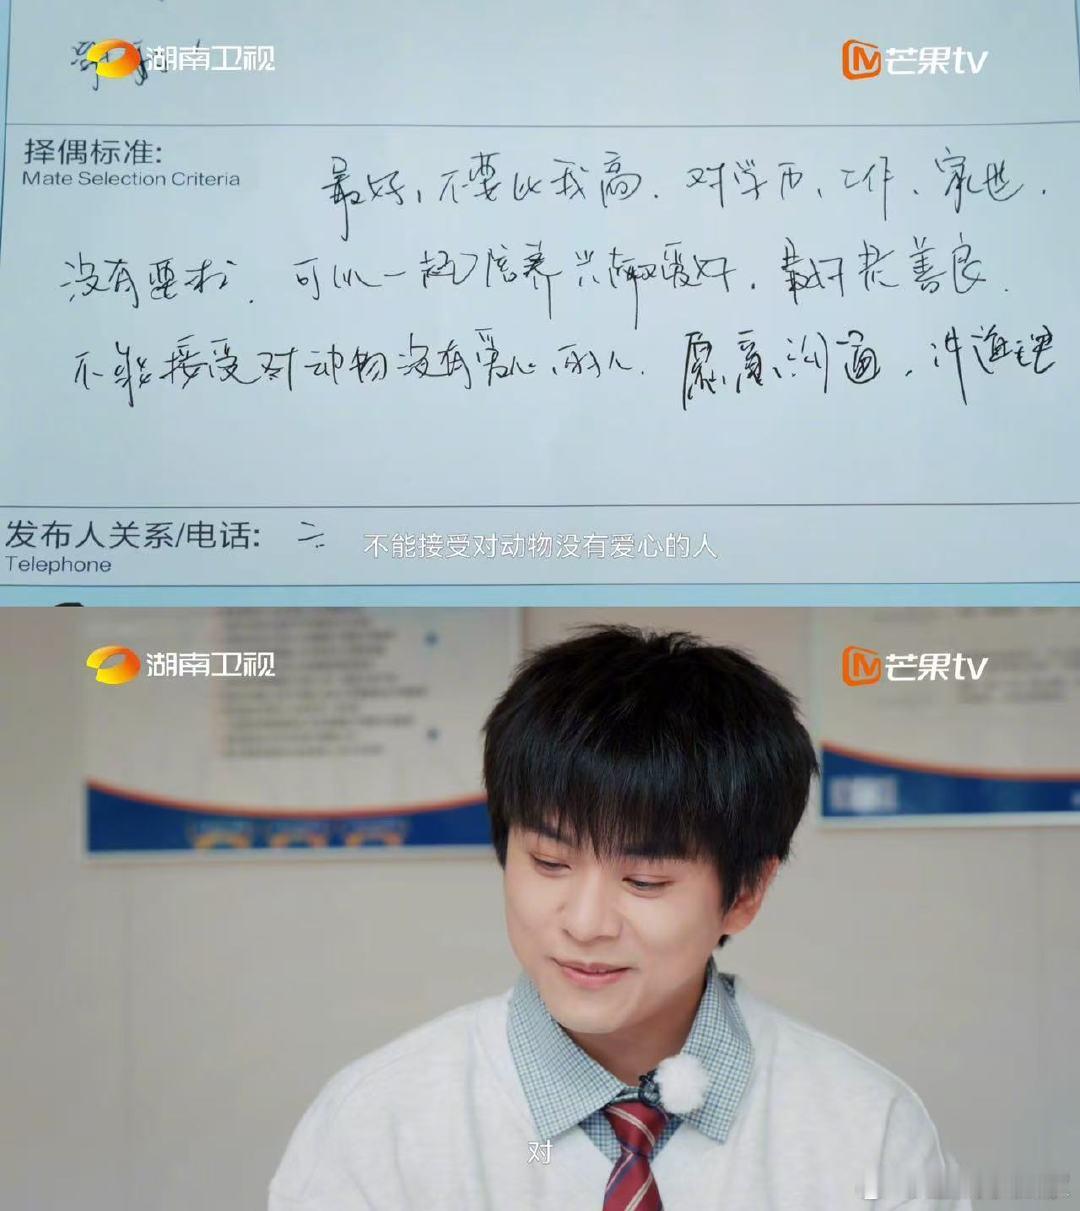 湖南卫视
芒果tv
择偶标准:
Mate Selection Criteria
最好,不要比我高.对学历、工作、家世.
没有要求.可以一起培养兴趣爱好.最好很善良.
不能接受对动物没有爱心的人.愿意沟通,讲道理
发布人关系/电话:
Telephone
不能接受对动物没有爱心的人
湖南卫视
芒果tv
对